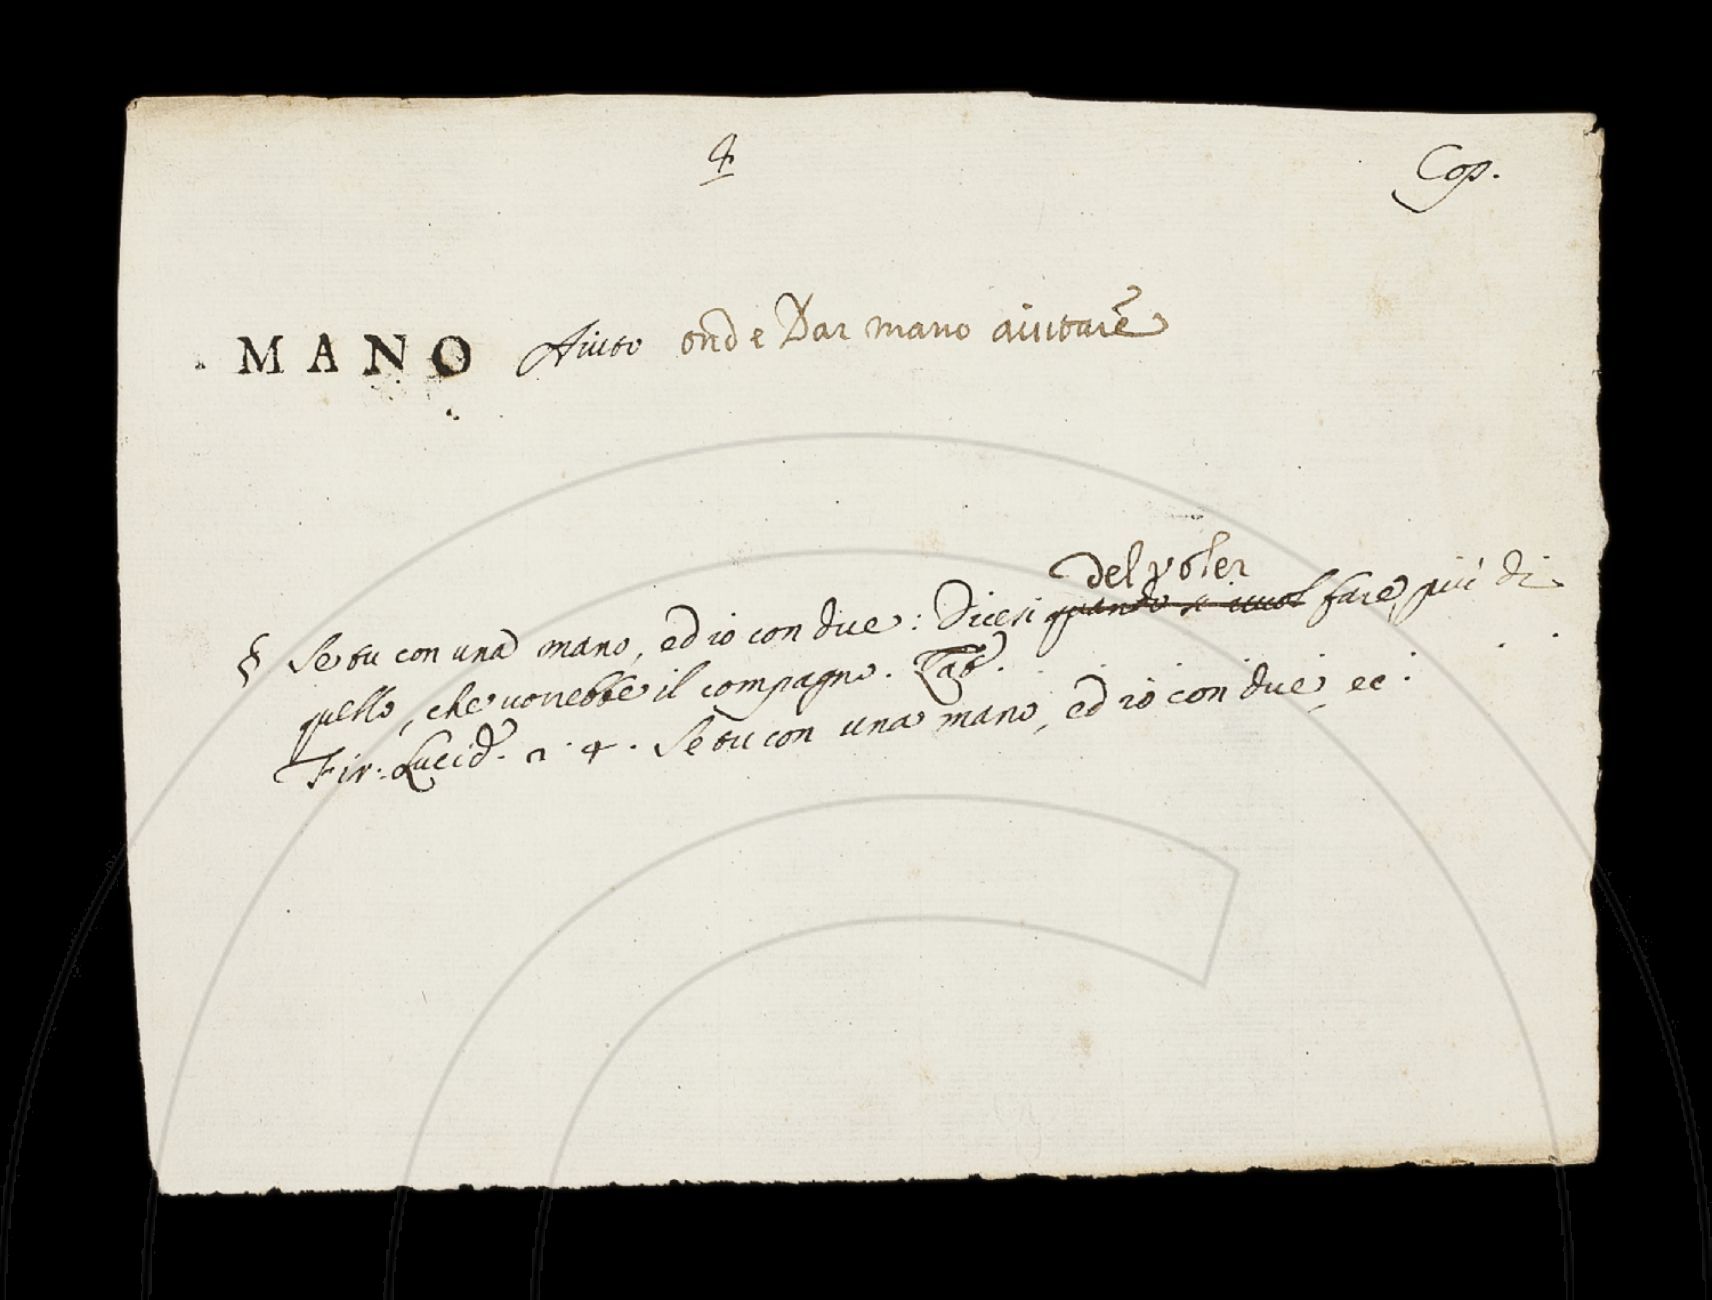 4
Cop.
MANO Aiuto onde Dar mano aiutare
del voler
§ Se tu con una mano, ed io con due: Dicesi quando si vuol fare più di
quello, che vorrebbe il compagno.
Fir. Lucid. 2. 4. Se tu con una mano, ed io con due, ec: